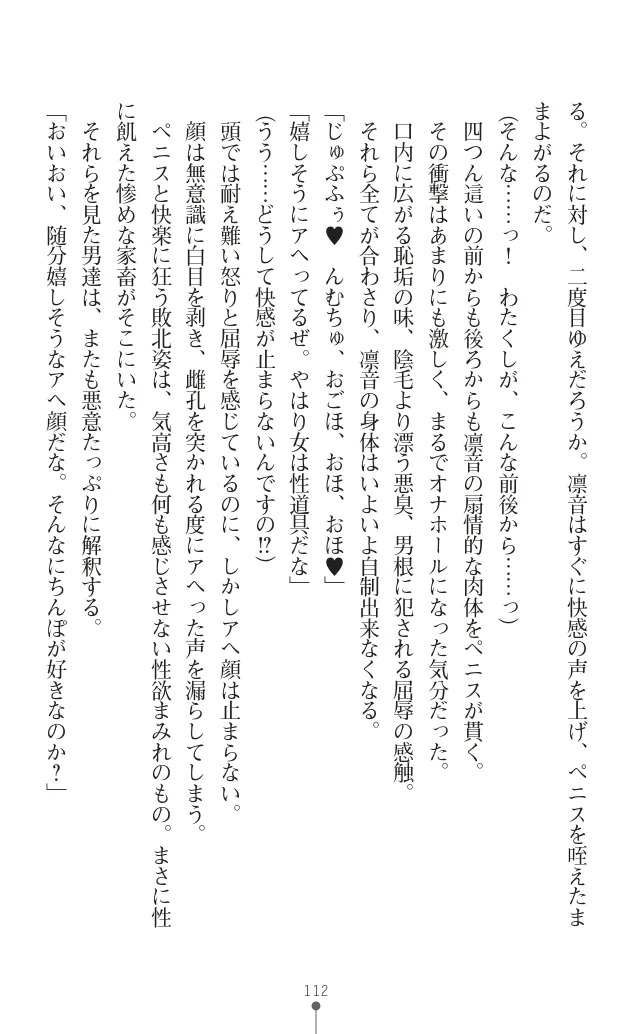 る。それに対し、二度目ゆえだろうか。凛音はすぐに快感の声を上げ、ペニスを咥えたま
まよがるのだ。
(そんな……っ！　わたくしが、こんな前後から……っ)
四つん這いの前からも後ろからも凛音の扇情的な肉体をペニスが貫く。
その衝撃はあまりにも激しく、まるでオナホールになった気分だった。
口内に広がる恥垢の味、陰毛より漂う悪臭、男根に犯される屈辱の感触。
それら全てが合わさり、凛音の身体はいよいよ自制出来なくなる。
「じゅぷふぅ♥　んむちゅ、おごほ、おほ、おほ♥」
「嬉しそうにアヘってるぜ。やはり女は性道具だな」
(うう……どうして快感が止まらないんですの!?)
頭では耐え難い怒りと屈辱を感じているのに、しかしアヘ顔は止まらない。
顔は無意識に白目を剥き、雌孔を突かれる度にアヘった声を漏らしてしまう。
ペニスと快楽に狂う敗北姿は、気高さも何も感じさせない性欲まみれのもの。まさに性
に飢えた惨めな家畜がそこにいた。
それらを見た男達は、またも悪意たっぷりに解釈する。
「おいおい、随分嬉しそうなアヘ顔だな。そんなにちんぽが好きなのか？」
112